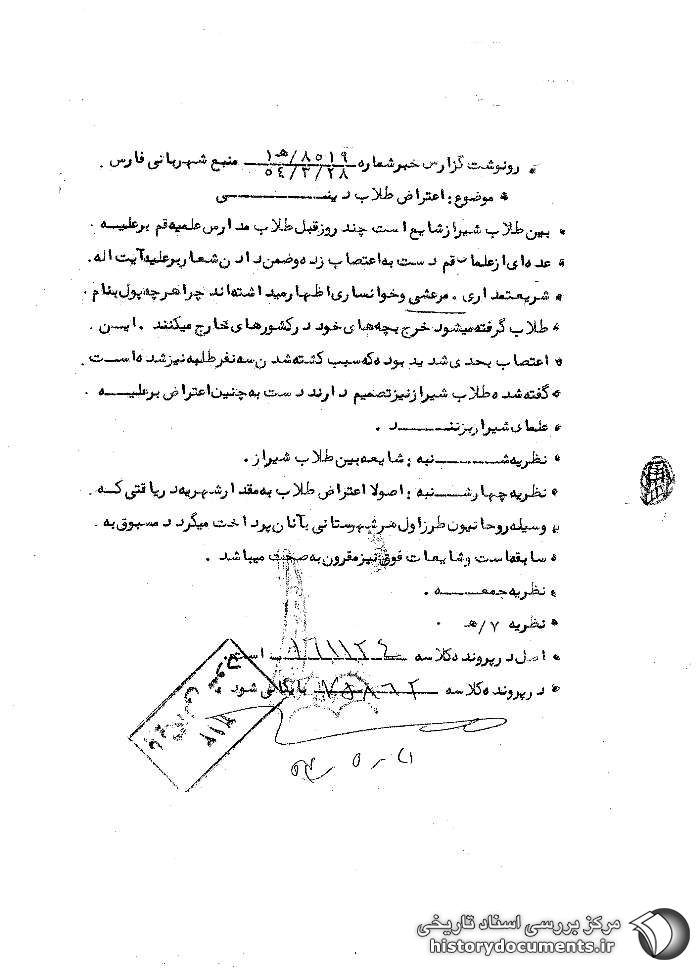 رونوشت گزارش خبر شماره ۸۵۱۹/ه‍ ۱ منبع شهربانی فارس .
۵۴/۳/۲۸
موضوع : اعتراض طلاب دینـــــی
بین طلاب شیراز شایع است چند روز قبل طلاب مدارس علمیه قم برعلیـه .
عده ای از علماء قم دست به اعتصاب زده و ضمن دادن شعار برعلیه آیت اله .
شریعتمداری . مرعشی و خوانساری اظهار میداشته اند چرا هر چه پول بنام .
طلاب گرفته میشود خرج بچه های خود در کشورهای خارج میکنند . ایـن .
اعتصاب بحدی شدید بوده که سبب کشته شدن سه نفر طلبه نیز شده است .
گفته شده طلاب شیراز نیز تصمیم دارند دست به چنین اعتراض برعلیـه .
علمای شیراز بزننـــد .
نظریه شـــنبه : شایعه بین طلاب شیراز .
نظریه چهارشـــنبه : اصولا اعتراض طلاب به مقدار شهریه دریافتی کـه .
بوسیله روحانیون طرز اول هر شهرستانی بآنان پرداخت میگردد مسبوق به .
سابقه است و شایعات فوق نیز مقرون به صحت میباشد .
نظریه جمعـــه .
نظریه ۷/ه‍ .
اصل در پرونده کلاسه ۱۶۱۱۲۴ است .
در پرونده کلاسه بایگانی شود
۳۱۲
مرکز بررسی اسناد تاریخی
historydocuments.ir